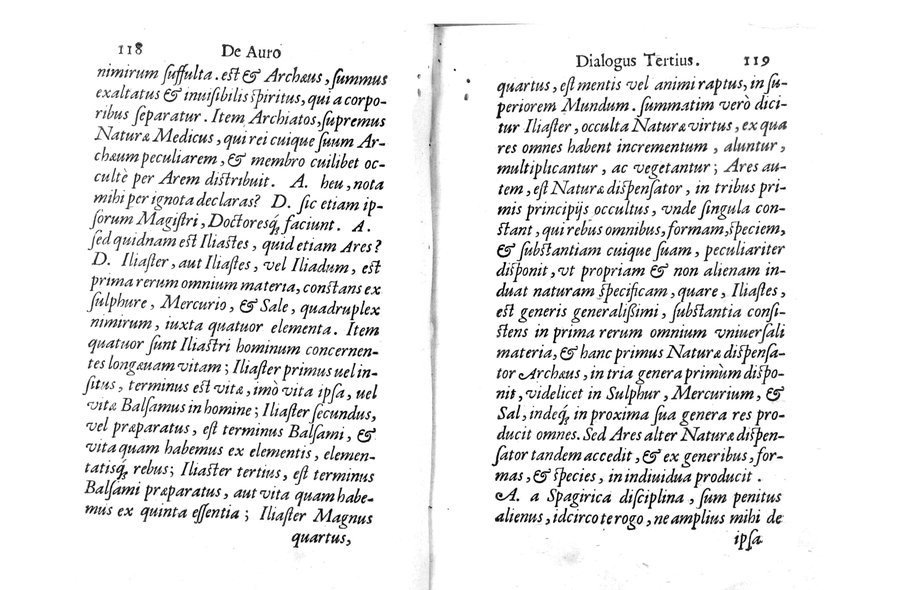 118 De Auro
nimirum suffulta. est & Archæus, summus
exaltatus & inuisibilis spiritus, qui a corpo-
ribus separatur. Item Archiatos, supremus
Naturæ Medicus, qui rei cuique suum Ar-
chæum peculiarem, & membro cuilibet oc-
cultè per Arem distribuit. A. heu, nota
mihi per ignota declaras? D. sic etiam ip-
sorum Magistri, Doctoresq́ faciunt. A.
sed quidnam est Iliastes, quid etiam Ares?
D. Iliaster, aut Iliastes, vel Iliadum, est
prima rerum omnium materia, constans ex
sulphure, Mercurio, & Sale, quadruplex
nimirum, iuxta quatuor elementa. Item
quatuor sunt Iliastri hominum concernen-
tes longæuam vitam; Iliaster primus uel in-
situs, terminus est vitæ, imò vita ipsa, uel
vitæ Balsamus in homine; Iliaster secundus,
vel præparatus, est terminus Balsami, &
vita quam habemus ex elementis, elemen-
tatisq́ rebus; Iliaster tertius, est terminus
Balsami præparatus, aut vita quam habe-
mus ex quinta essentia; Iliaster Magnus
quartus,
Dialogus Tertius. 119
quartus, est mentis vel animi raptus, in su-
periorem Mundum. summatim verò dici-
tur Iliaster, occulta Naturæ virtus, ex qua
res omnes habent incrementum, aluntur,
multiplicantur, ac vegetantur; Ares au-
tem, est Naturæ dispensator, in tribus pri-
mis principijs occultus, vnde singula con-
stant, qui rebus omnibus, formam, speciem,
& substantiam cuique suam, peculiariter
disponit, vt propriam & non alienam in-
duat naturam specificam, quare, Iliastes,
est generis generalissimi, substantia consi-
stens in prima rerum omnium vniuersali
materia, & hanc primus Naturæ dispensa-
tor Archæus, in tria genera primùm dispo-
nit, videlicet in Sulphur, Mercurium, &
Sal, indeq́, in proxima sua genera res pro-
ducit omnes. Sed Ares alter Naturæ dispen-
sator tandem accedit, & ex generibus, for-
mas, & species, in indiuidua producit.
A. a Spagirica disciplina, sum penitus
alienus, idcirco te rogo, ne amplius mihi de
ipsa